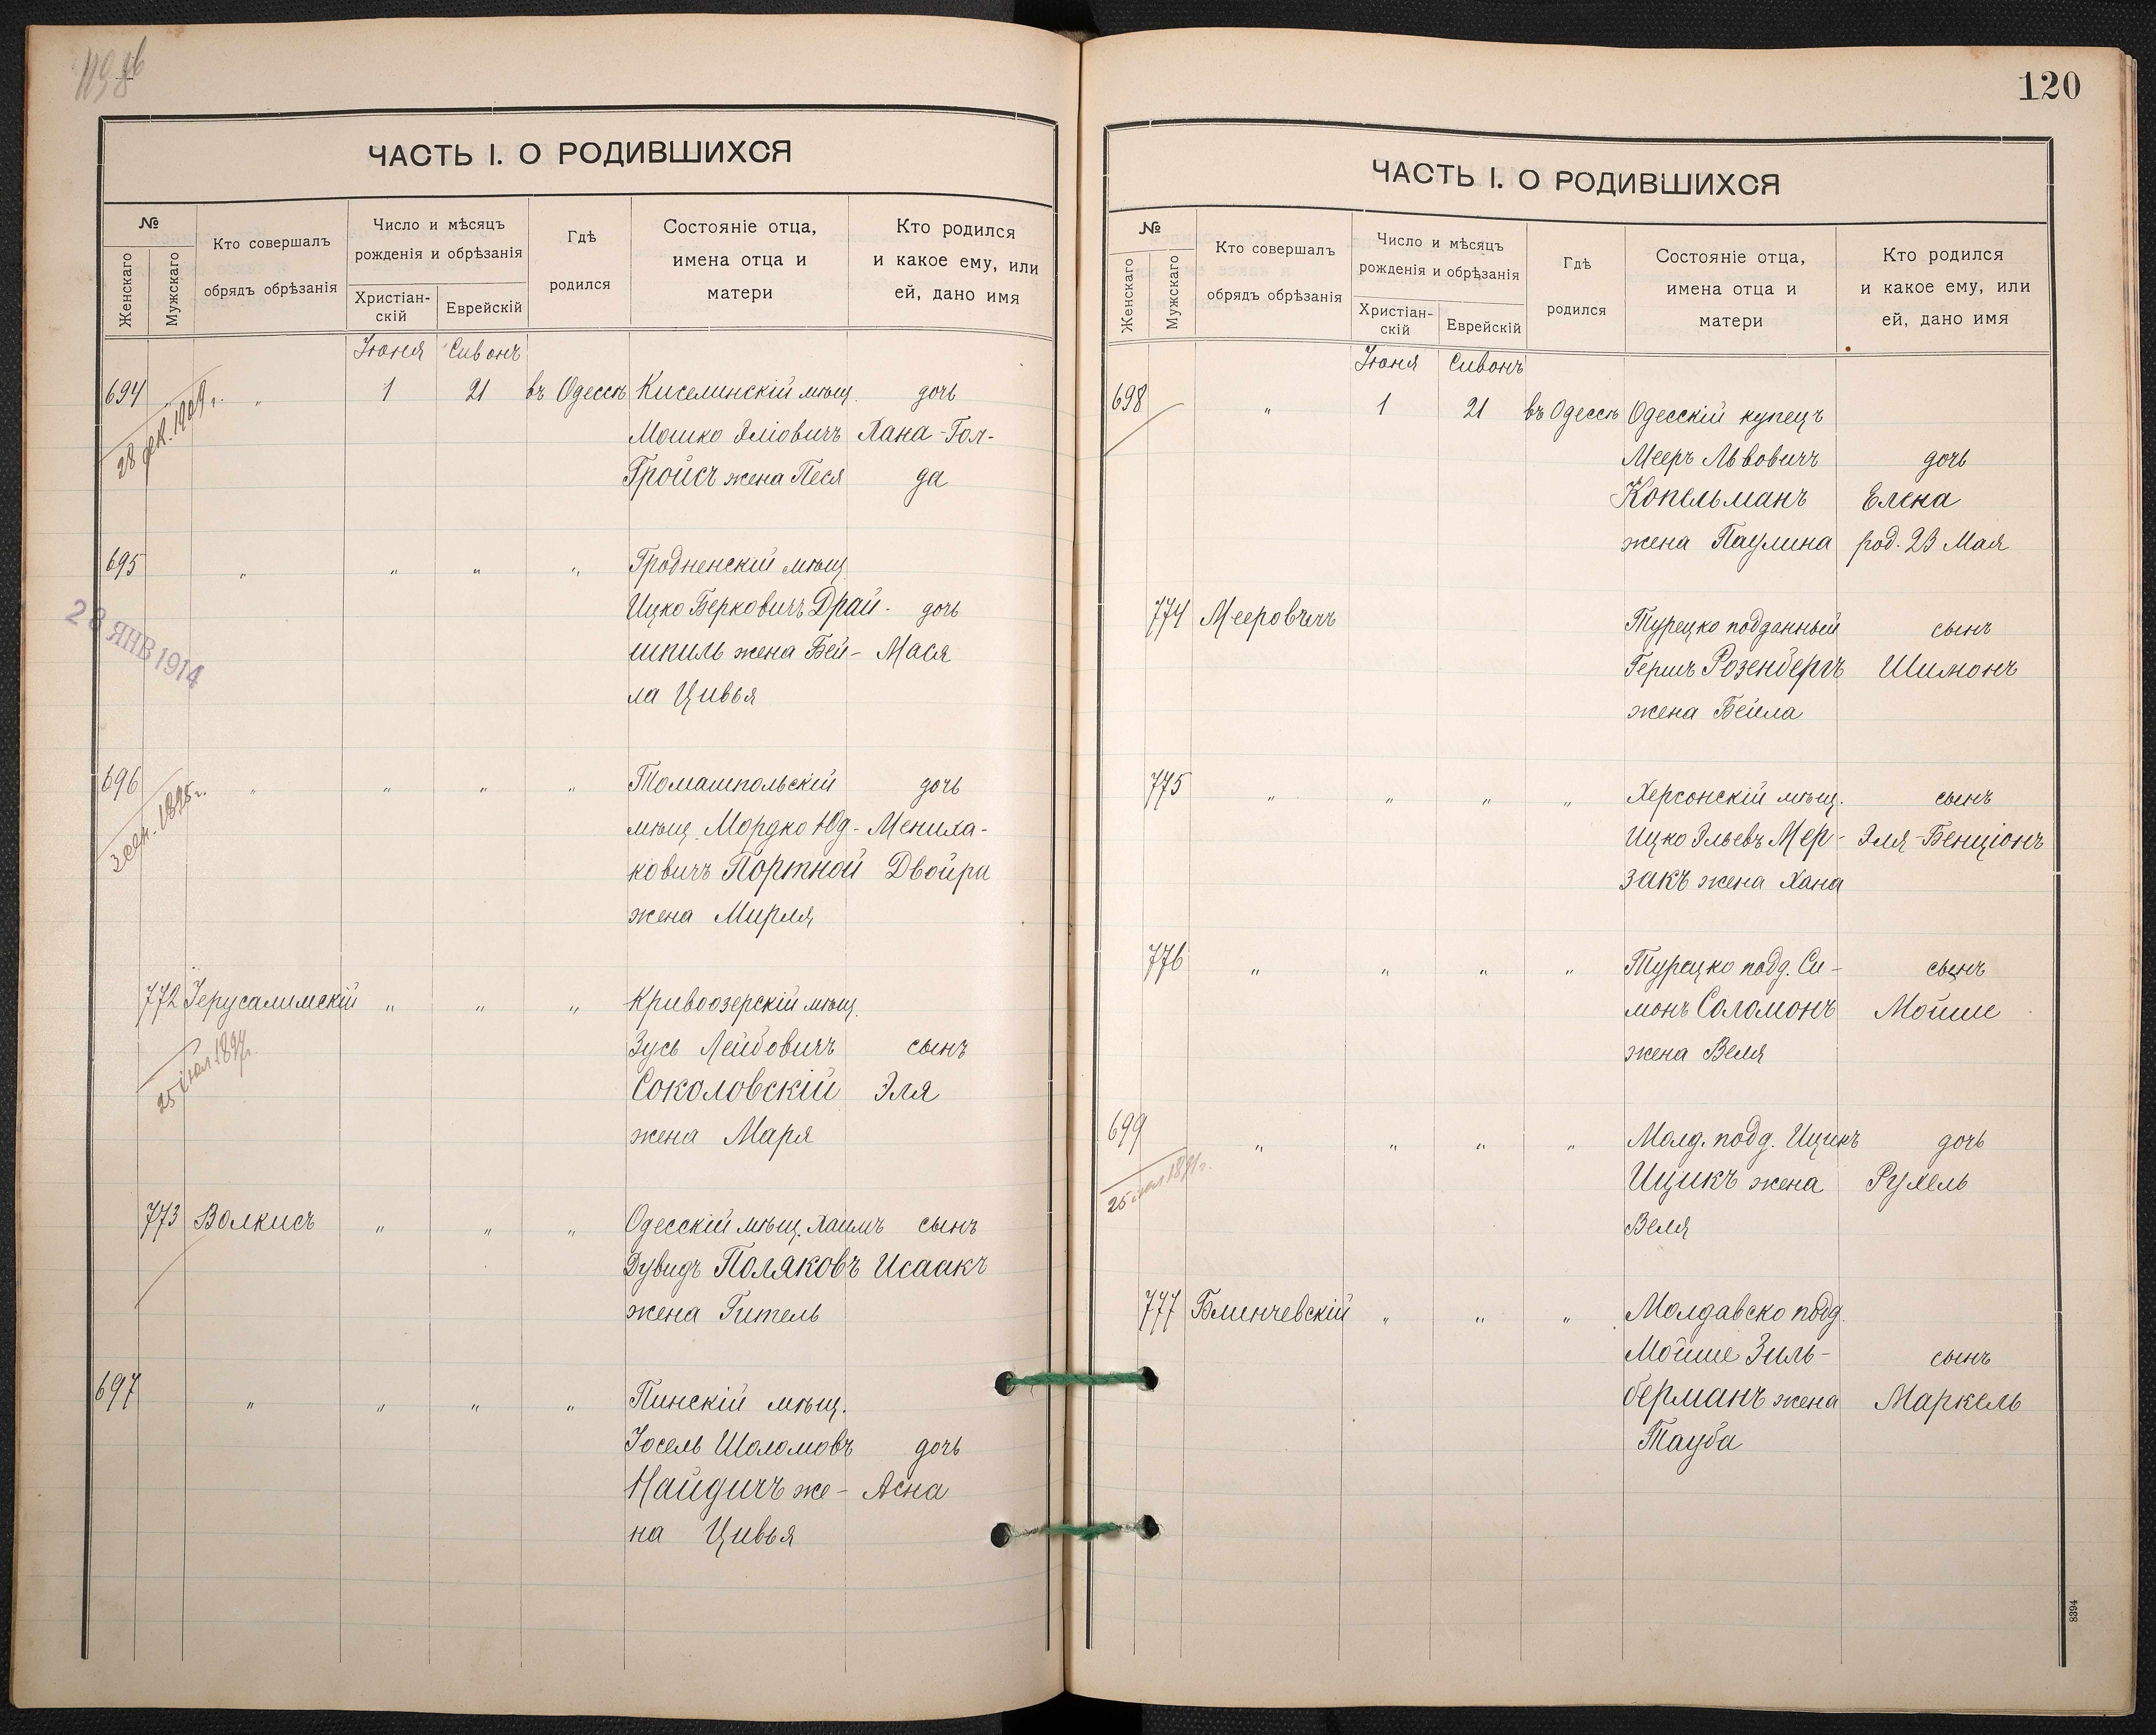 ЧАСТЬ I. О РОДИВШИХСЯ
№
Женскаго
Мужскаго
Кто совершалъ
обрядъ обрѣзанія
Число и мѣсяцъ
рожденія и обрѣзанія
Христіан-
скій
Еврейскій
Гдѣ
родился
Состояніе отца,
имена отца и
матери
Кто родился
и какое ему, или
ей, дано имя
Іюня Сивонъ
694 " " 1 21 въ Одессѣ Киселинскій мѣщ. дочь
28 дек. 1909 г.
Мошко Эліовичъ Хана-Гол-
Гройсъ жена Песя да
695 " " " " Гродненскій мѣщ
Ицко Берковичъ Драй- дочь
28 ЯНВ 1914
шпиль жена Бей- Мася
ла Цивья
696 " " " " Томашпольскій дочь
1895 г.
мѣщ. Мордко Юд- Мениха-
ковичъ Портной Двойра
жена Мирля
772 Іерусалимскій " " " Кривоозерскій мѣщ.
Зусь Лейбовичъ сынъ
25 1897 г.
Соколовскій Эля
жена Маря
773 Волкисъ " " " Одесскій мѣщ. Хаимъ сынъ
Дувидъ Поляковъ Исаакъ
жена Гитель
697 " " " " Пинскій мѣщ.
Іосель Шоломовъ дочь
Найдичъ же- Асна
на Цивья
120
ЧАСТЬ I. О РОДИВШИХСЯ
№
Женскаго
Мужскаго
Кто совершалъ
обрядъ обрѣзанія
Число и мѣсяцъ
рожденія и обрѣзанія
Христіан-
скій
Еврейскій
Гдѣ
родился
Состояніе отца,
имена отца и
матери
Кто родился
и какое ему, или
ей, дано имя
Іюня Сивонъ
698 " 1 21 въ Одессѣ Одесскій купецъ
Мееръ Львовичъ дочь
Копельманъ Елена
жена Паулина род. 23 Мая
774 Мееровичъ Турецко подданный сынъ
Гершъ Розенбергъ Шимонъ
жена Бейла
775 " " " " Херсонскій мѣщ. сынъ
Ицко Эльевъ Мер- Эля-Бенціонъ
закъ жена Хана
776 " " " " Турецко подд. Си- сынъ
монъ Соломонъ Мойше
жена Веля
699 " " " " Молд. подд. Ицикъ дочь
25
Ицикъ жена Рухель
Веля
777 Блинчевскій " " " Молдавско подд.
Мойше Зиль- сынъ
берманъ жена Маркель
Тауба
8394